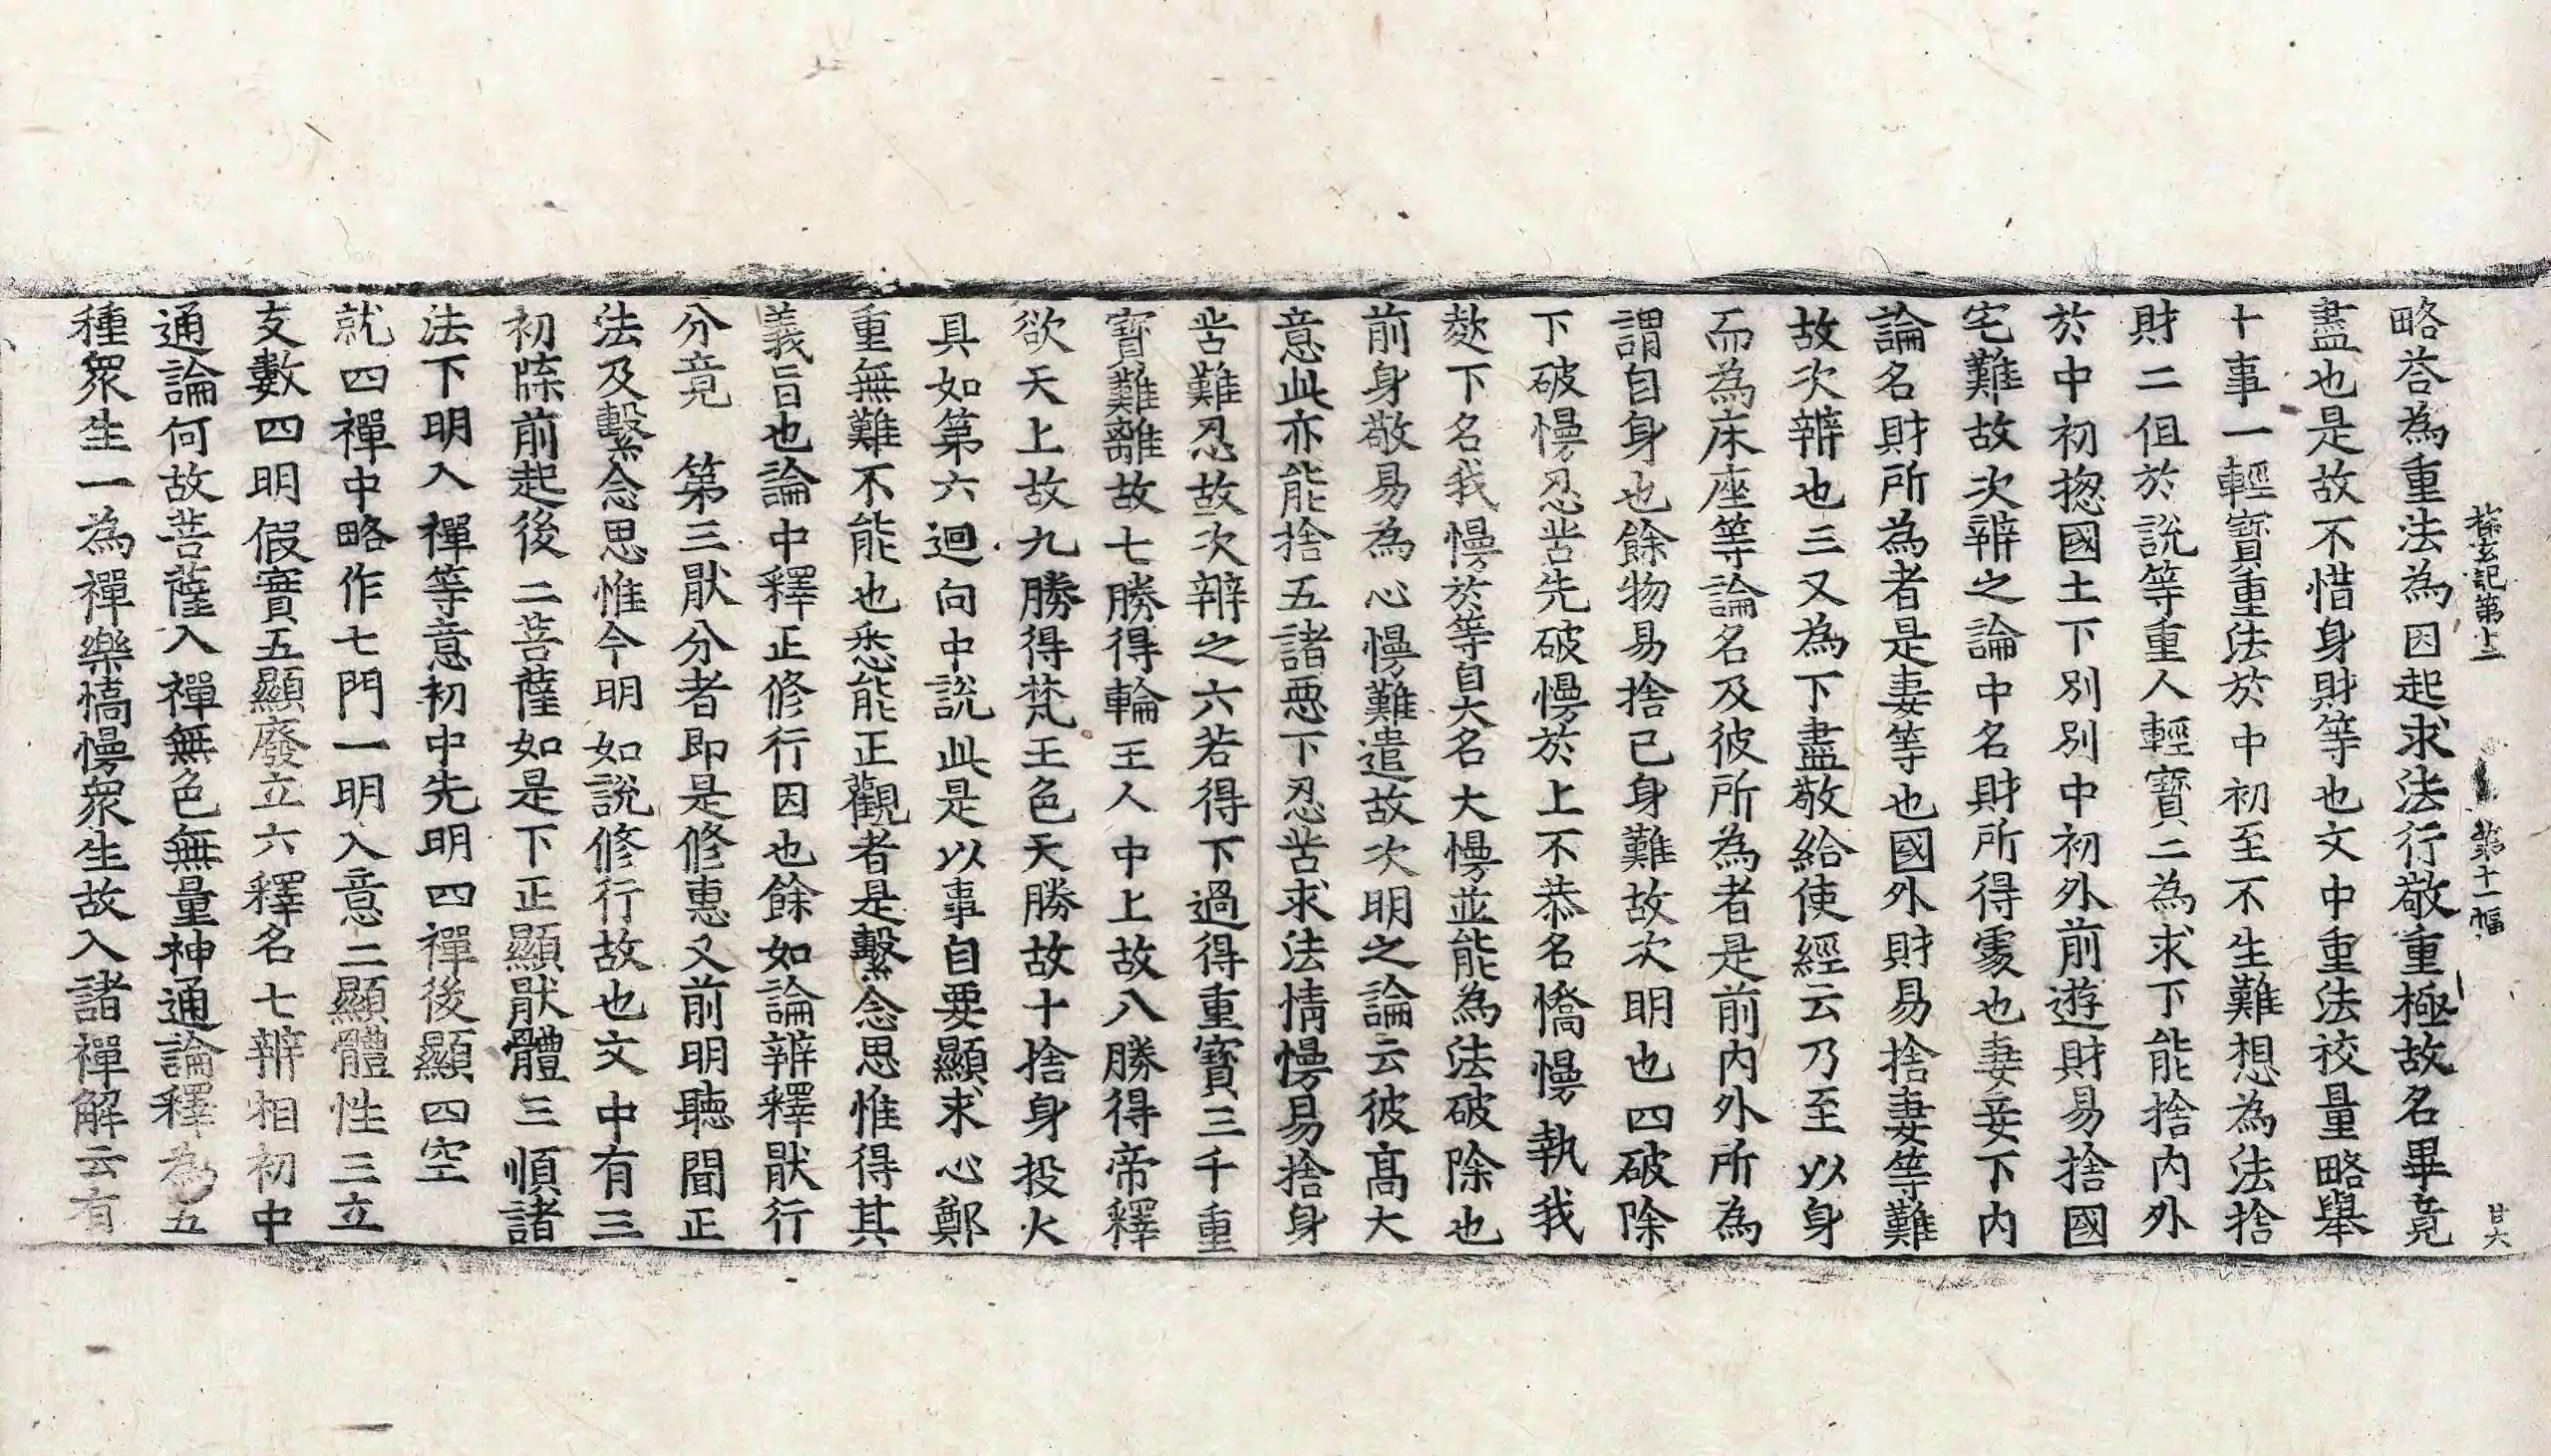 探玄記第十二 第十一幅 甘大
略荅為重法為因起求法行敬重極故名畢竟
盡也是故不惜身財等也文中重法校量略舉
十事一輕寶重法於中初至不生難想為法捨
財二伹於說等重人輕寶二為求下能捨内外
於中初揔國土下別別中初外前遊財易捨國
宅難故次辨之論中名財所得䖏也妻妾下内
論名財所為者是妻等也國外財易捨妻等難
故次辨也三又為下盡敬給使經云乃至以身
而為床座等論名及彼所為者是前内外所為
謂自身也餘物易捨己身難故次明也四破除
下破慢忍苦先破慢於上不恭名憍慢執我
慠下名我慢於等自大名大慢並能為法破除也
前身敬易為心慢難遣故次明之論云彼髙大
意此亦能捨五諸惡下忍苦求法情慢易捨身
苦難忍故次辨之六若得下過得重寶三千重
寶難離故七勝得輪王人中上故八勝得帝釋
欲天上故九勝得梵王色天勝故十捨身投火
具如第六迴向中説此是以事自要顯求心鄭
重無難不能也悉能正觀者是繫念思惟得其
義旨也論中釋正修行因也餘如論辨釋猒行
分竟 第三猒分者即是修惠又前明聽聞正
法及繫念思惟今明如説修行故也文中有三
初牒前起後二菩薩如是下正顯猒體三順諸
法下明入禪等意初中先明四禪後顯四空
就四禪中略作七門一明入意二顯體性三立
支數四明假實五顯廢立六釋名七辨相初中
通論何故菩薩入禪無色無量神通論釋為五
種眾生一為禪樂憍慢眾生故入諸禪解云有